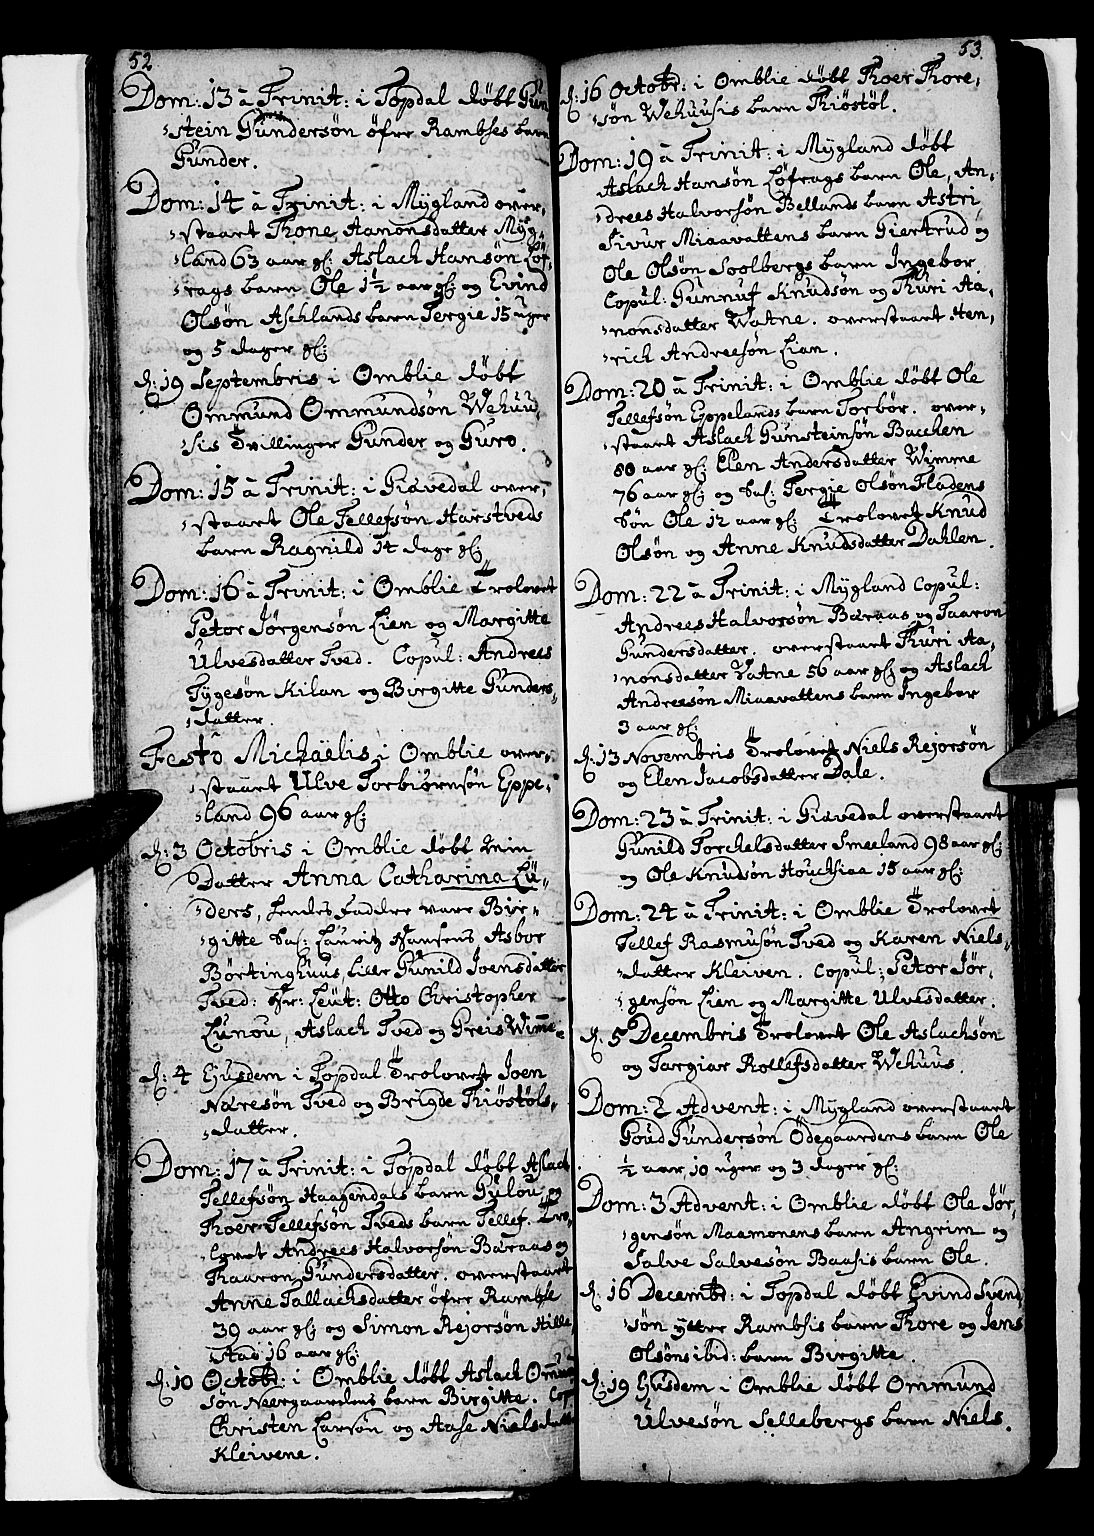 52
Dom: 13 à Trinit: i Topdal döbt Gun
stein Gundersön öfre Rambses barn
Gunder.
Dom: 14 à Trinit: i Mÿgland over,
staart Thone Aanonsdatter Mÿg,
land 63 aar gl: Aslach Hansön Löf,
rags barn Ole 1½ aar gl: og Evind
Olsön Aschlands barn Tergie 15 uger
og 5 dager gl:
d: 19 Septembris i Omblie döbt
Ommund Ommundsön Wehuu,
sis Tvillinger Gunder og Guro.
Dom: 15 à Trinit: i Giovedal over,
staart Ole Tellefsön Harstveds
barn Ragnild 14 dage gl:
Dom: 16 à Trinit: i Omblie Trolovet
Petor Jörgensön Lien og Margitte
Ulvesdatter Tved. Copul: Andrees
Tÿgesön Kilan og Birgitte Gunders,
datter.
Festo Michaëlis i Omblie over,
staart Ulve Torbiörnsön Eppe,
land 96 aar gl:
d: 3 Octobris i Omblie döbt min
Datter Anna Catharina Lü,
ders, hendes Faddre vare Bir,
gitte Sal: Lauritz Hansens Asbor
Börtinghuus, lille Gunild Joensdatter
Tved: Hr: Leut: Otto Christopher
Lunou, Aslach Tved og Greis Wimme
d: 4 Ejusdem i Topdal Trolovet Joen
Naresön Tved og Brigde Thiöstöls,
datter.
Dom: 17 à Trinit: i Topdal döbt Aslach
Tellefsön Haagendals barn Gulou og
Thoer Tellefsön Tveds barn Tellef. Tro,
lovet Andrees Halvorsön Baraas og
Thaaron Gundersdatter. overstaart
Anne Tallachsdatter öfre Rambse
39 aar gl: og Simon Rejorsön Hille
stad 16 aar gl:
d: 10 Octobr: i Omblie döbt Aslach Ommund
sön Neergaardens barn Birgitte. Cop
Christen Larsön og Aase Nielsdatter
Kleivene.
53.
d: 16 Octobr: i Omblie döbt Thoer Thore,
sön Wehuusis barn Thiöstöl.
Dom: 19 à Trinit: i Mÿgland döbt
Aslach Hansön Löfrags barn Ole, An,
drees Halvorsön Bellands barn Astri
Sivur Miaavattens barn Giertrud og
Ole Olsön Soolbergs barn Ingebor
Copul: Gunnuf Knudsön og Thuri Aa,
nonsdatter Watne. overstaart Hen,
rich Andreesön Lian.
Dom: 20 à Trinit: i Omblie döbt Ole
Tellefsön Eppelands barn Torbör. over,
staart Aslach Gunsteinsön Bacchen
80 aar gl: Elen Andersdatter Wimme
76 aar gl: og Sal: Tergie Olsön Fladens
Sön Ole 12 aar gl: Trolovet Knud
Olsön og Anne Knudsdatter Dahlen.
Dom: 22 à Trinit: i Mÿgland Copul:
Andrees Halvorsön Baraas og Taaron
Gundersdatter. overstaart Thuri Aa,
nonsdatter Vatne 56 aar gl: og Aslach
Andreesön Miaavattens barn Ingebor
3 aar gl:
d: 13 Novembris Trolovet Niels Rejorsön
og Elen Jacobsdatter Dale.
Dom: 23 à Trinit: i Giovedal overstaart
Gunild Torchelsdatter Smeeland 98 aar gl:
og Ole Knudsön Houchsiaa 15 aar gl:
Dom: 24 à Trinit: i Omblie Trolovet
Tellef Rasmusön Tved og Karen Niels,
datter Kleiven. Copul: Petor Jör,
gensön Lien og Margitte Ulvesdatter.
d: 5 Decembris Trolovet Ole Aslachsön
og Targiar Rollefsdatter Wehuus.
Dom: 2 Advent: i Mÿgland overstaart
Goud Gundersön Ödegaardens barn Ole
½ aar 10 uger og 3 dager gl:
Dom: 3 Advent: i Omblie döbt Ole Jör,
gensön Maamonens barn Angrim og
Salve Salvesön Baasis barn Ole.
d: 16 Decembr: i Topdal döbt Evind Svend
sön ÿtter Rambsis barn Thore og Jens
Olsöns ibid: barn Birgitte.
d: 19 Ejusdem i Omblie döbt Ommund
Ulvesön Sellebergs barn Niels.